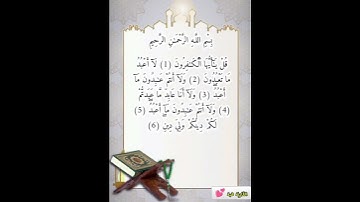 بِسْمِ اللَّهِ الرَّحْمَٰنِ الرَّحِيمِ
قُلْ يَٰٓأَيُّهَا ٱلْكَٰفِرُونَ (1) لَآ أَعْبُدُ
مَا تَعْبُدُونَ (2) وَلَآ أَنتُمْ عَٰبِدُونَ مَآ
أَعْبُدُ (3) وَلَآ أَنَا۠ عَابِدٌ مَّا عَبَدتُّمْ
(4) وَلَآ أَنتُمْ عَٰبِدُونَ مَآ أَعْبُدُ (5)
لَكُمْ دِينُكُمْ وَلِيَ دِينِ (6)